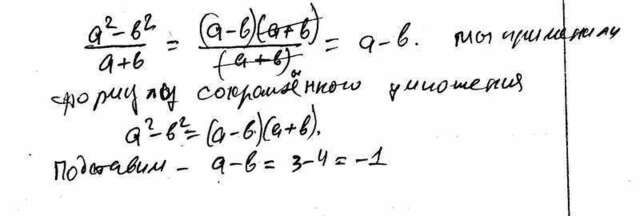 (a²-b²)/(a+b) = ((a-b)(a+b))/(a+b) = a-b. Мы применили
формулу сокращённого умножения
a²-b²=(a-b)(a+b).
Подставим - a-b = 3-4 = -1